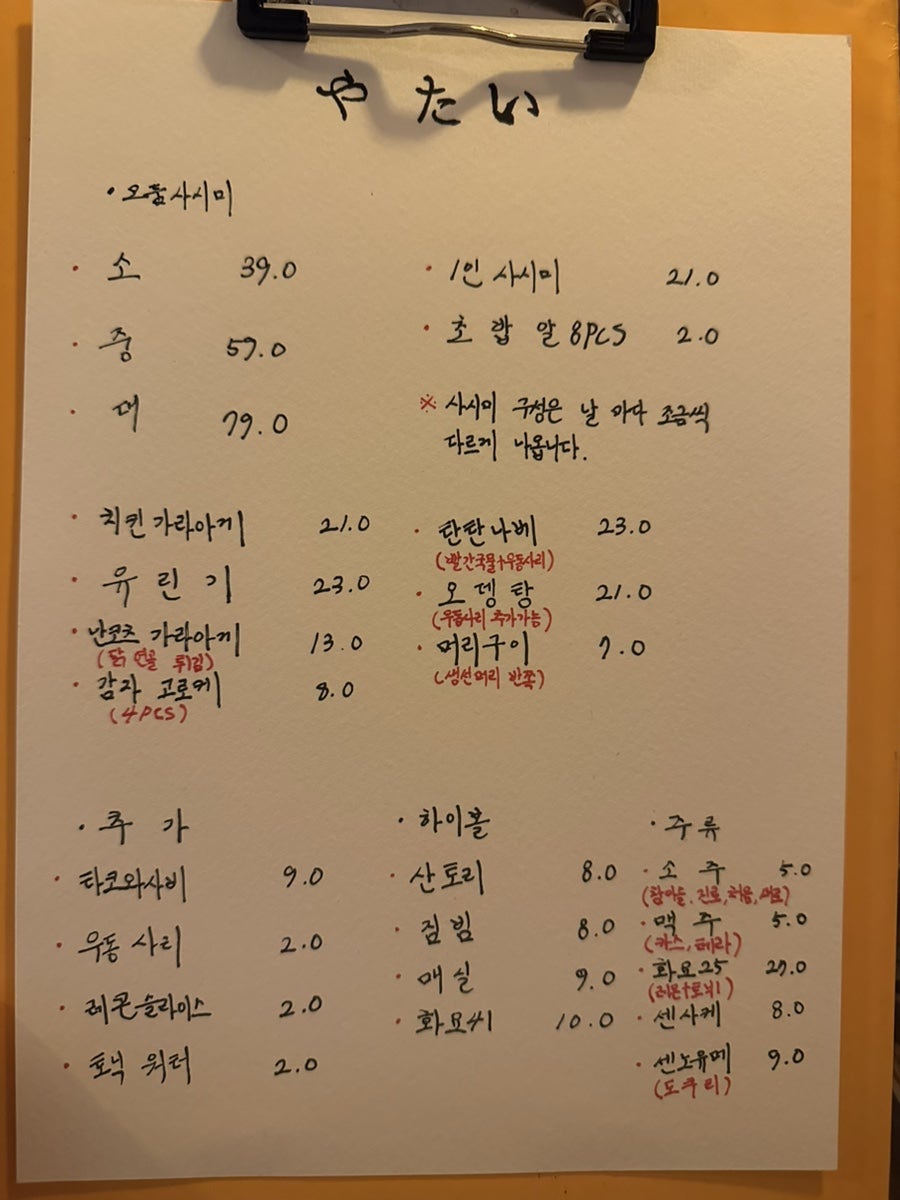 やたい
· 오늘사시미
· 소 39.0
· 중 59.0
· 대 79.0
· 1인 사시미 21.0
· 초밥 알 8PCS 2.0
※ 사시미 구성은 날 마다 조금씩
다르게 나옵니다.
· 치킨 가라아게 21.0
· 유린기 23.0
· 난코츠 가라아게 13.0
(닭 연골 튀김)
· 감자 고로케 8.0
(4PCS)
· 탄탄나베 23.0
(빨간국물+우동사리)
· 오뎅탕 21.0
(우동사리 추가가능)
· 머리구이 7.0
(생선머리 반쪽)
· 추가
· 타코와사비 9.0
· 우동 사리 2.0
· 레몬슬라이스 2.0
· 토닉 워터 2.0
· 하이볼
· 산토리 8.0
· 짐빔 8.0
· 매실 9.0
· 화요41 10.0
· 주류
· 소주 5.0
(참이슬, 진로, 처음, 새로)
· 맥주 5.0
(카스, 테라)
· 화요25 27.0
(레몬+토닉1)
· 센사케 8.0
· 센노유메 9.0
(도쿠리)